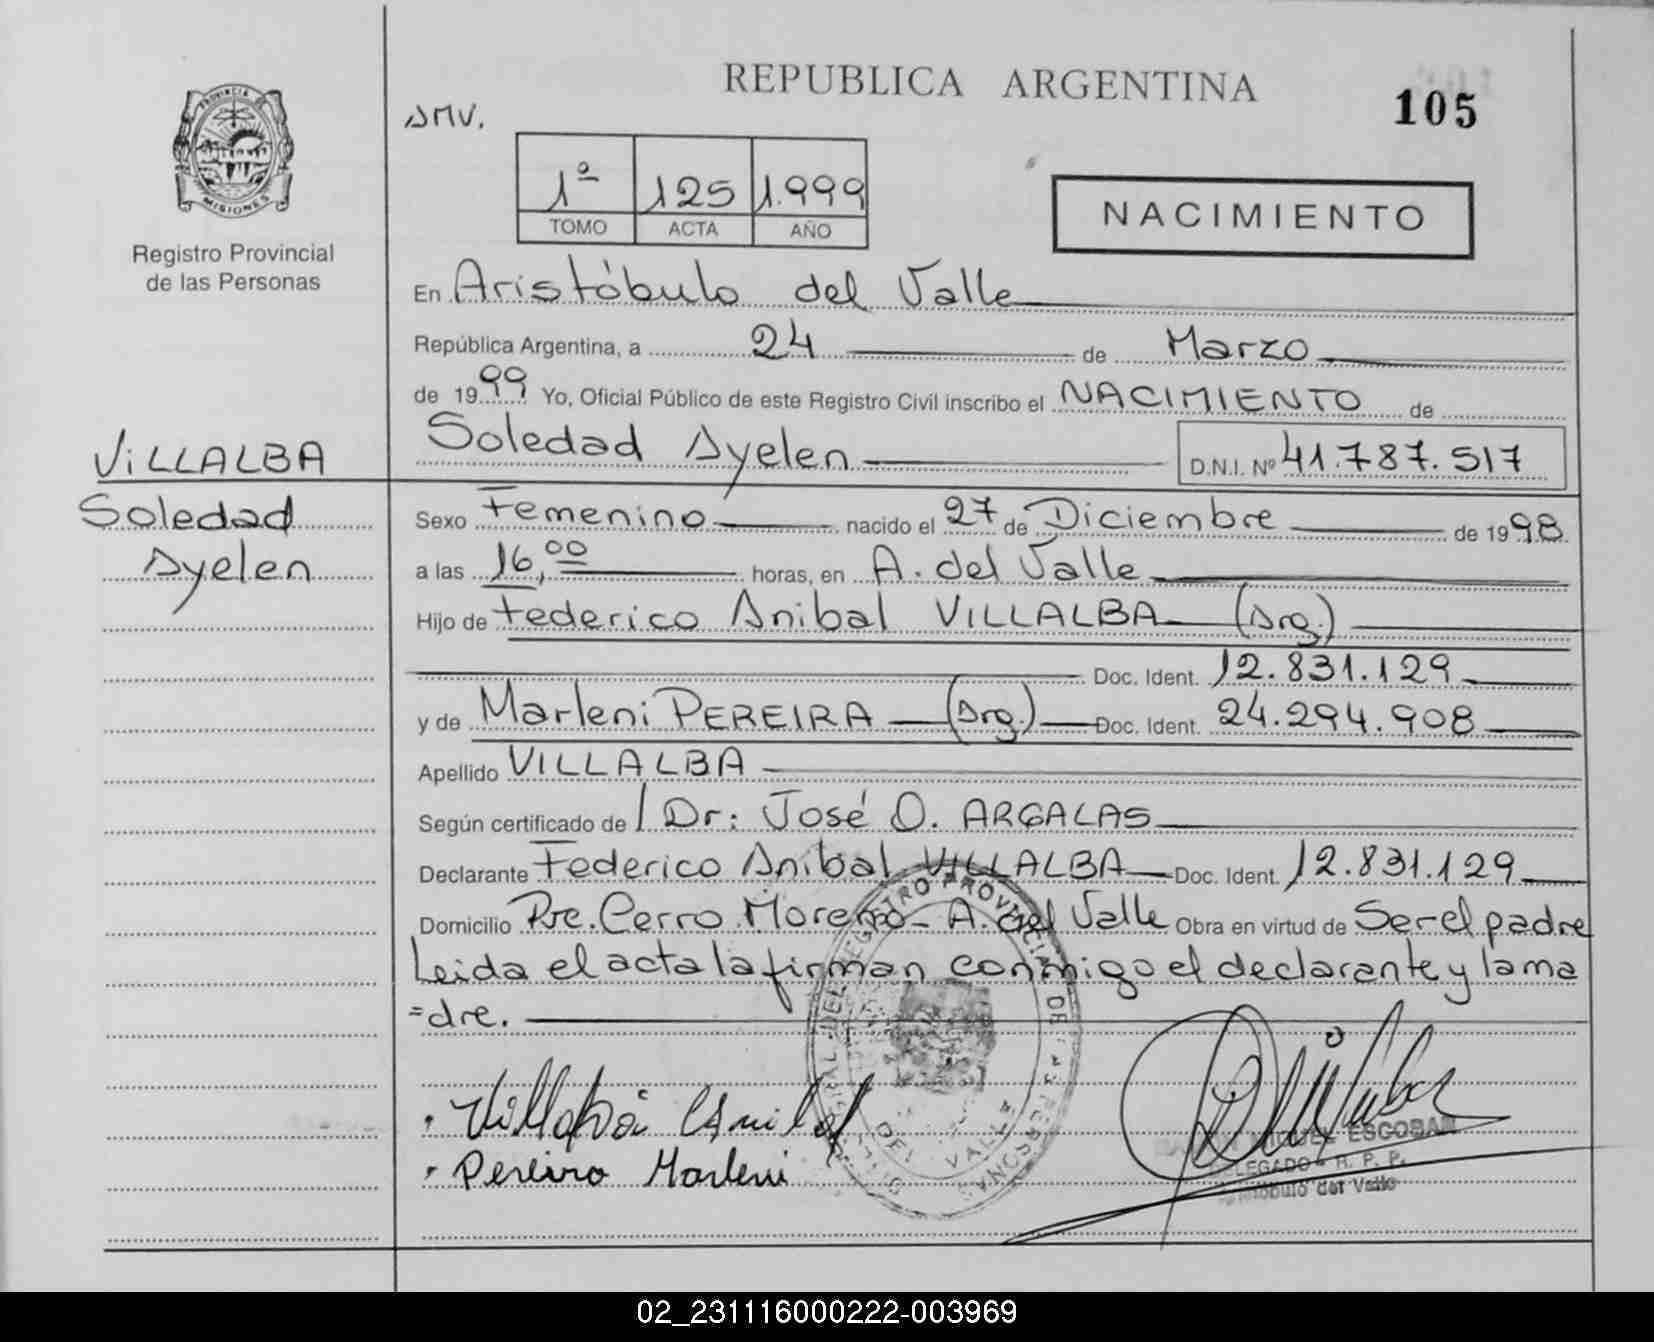 REPUBLICA ARGENTINA
105
PROVINCIA DE MISIONES
Registro Provincial
de las Personas
AMV.
1º 125 1.999
TOMO ACTA AÑO
NACIMIENTO
En Aristóbulo del Valle
República Argentina, a 24 de Marzo
de 1999 Yo, Oficial Público de este Registro Civil inscribo el NACIMIENTO de
VILLALBA
Soledad Ayelen D.N.I. Nº 41.787.517
Soledad
Ayelen
Sexo Femenino nacido el 27 de Diciembre de 1998
a las 16,00 horas, en A. del Valle
Hijo de Federico Anibal VILLALBA (Arg.)
Doc. Ident. 12.831.129
y de Marleni PEREIRA (Arg.) Doc. Ident. 24.294.908
Apellido VILLALBA
Según certificado de / Dr: José O. ARGALAS
Declarante Federico Anibal VILLALBA Doc. Ident. 12.831.129
Domicilio Pje. Cerro Moreno - A. del Valle Obra en virtud de Ser el padre
Leida el acta la firman conmigo el declarante y la ma
=dre.
Villalba Anibal
Pereira Marleni
REGISTRO PROVINCIAL DE LAS PERSONAS
DEL VALLE
MIGUEL ESCOBAR
DELEGADO - R. P. P.
Aristóbulo del Valle
02_231116000222-003969